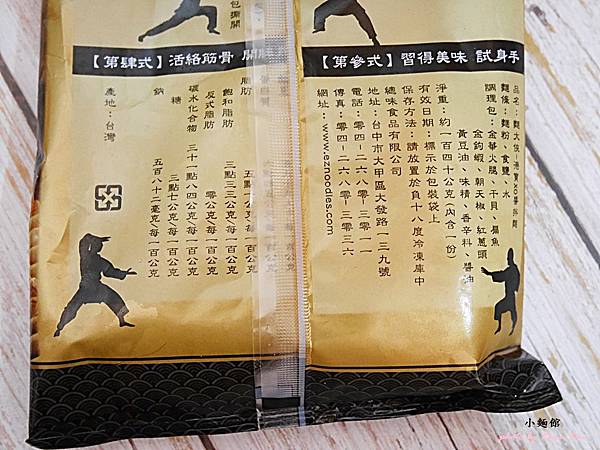 【第參式】習得美味 試身手
麵條：麵粉、食鹽、水
調理包：金華火腿、干貝、扁魚
金鉤蝦、朝天椒、紅蔥頭
黃豆油、味精、香辛料、醬油
淨重：約一百四十公克（內含一份）
有效日期：標示於包裝袋上
保存方法：請放置於負十八度冷凍庫中
總味食品有限公司
地址：台中市大甲區大發路一三九號
電話：零四-二六八零-三零一一
傳真：零四-二六八零-三零三六
網址：www.eznoodies.com
【第肆式】活絡筋骨
脂肪
飽和脂肪 三點三三公克/每一百公克
反式脂肪 零公克/每一百公克
碳水化合物 三十一點八四公克/每一百公克
糖 三點七公克/每一百公克
鈉 五百八十二毫克/每一百公克
產地：台灣
小麵館